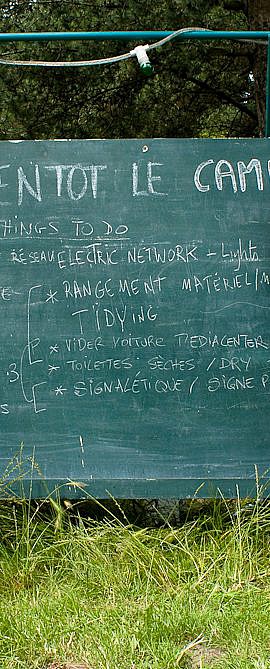 ENTOT LE CAM
THINGS TO DO
RÉSEAU ELECTRIC NETWORK + Lights
* RANGEMENT MATÉRIEL/M
TIDYING
* VIDER VOITURE MEDIACENTER
3 * TOILETTES SÈCHES / DRY
* SIGNALÉTIQUE / SIGNE P